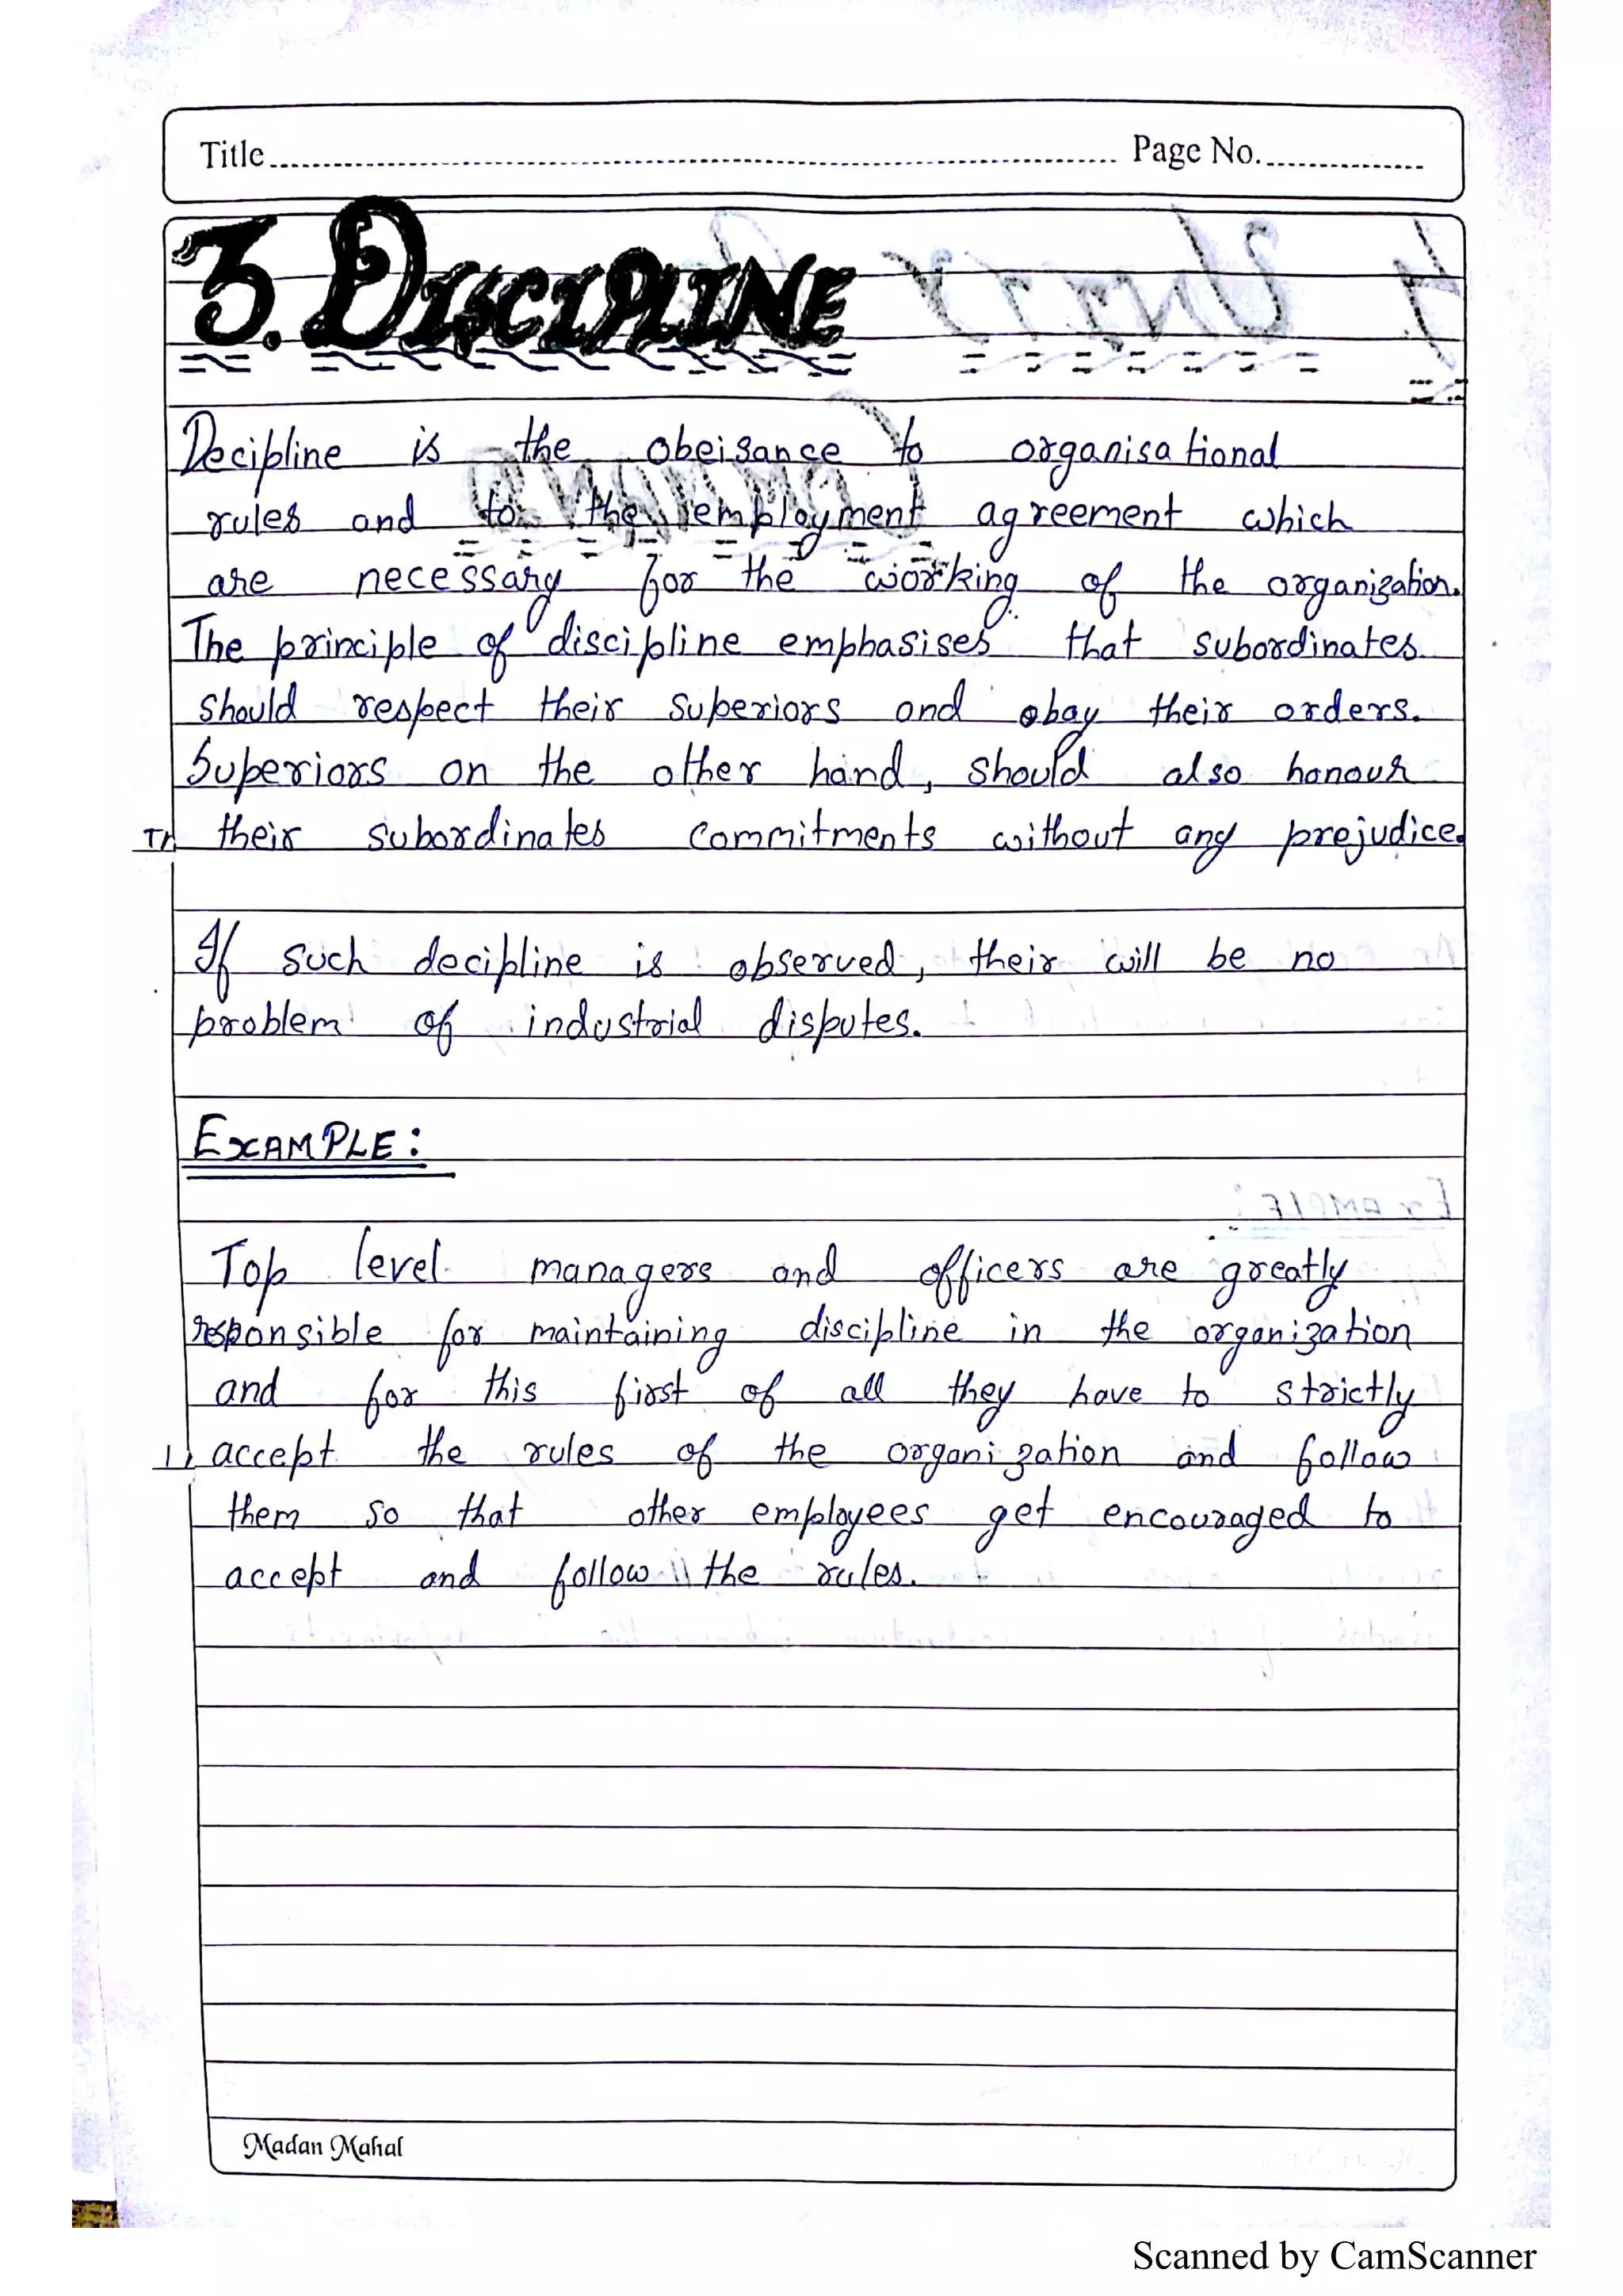 Title Page No.
3. DISCIPLINE
Decipline is the obeisance to organisational
rules and to the employment agreement which
are necessary for the working of the organization.
The principle of discipline emphasises that subordinates
should respect their superiors and obay their orders.
Superiors on the other hand, should also honour
their subordinates commitments without any prejudice.
If such decipline is observed, their will be no
problem of industrial disputes.
EXAMPLE:
Top level managers and officers are greatly
responsible for maintaining discipline in the organization
and for this first of all they have to strictly
accept the rules of the organization and follow
them so that other employees get encouraged to
accept and follow the rules.
Madan Mahal
Scanned by CamScanner